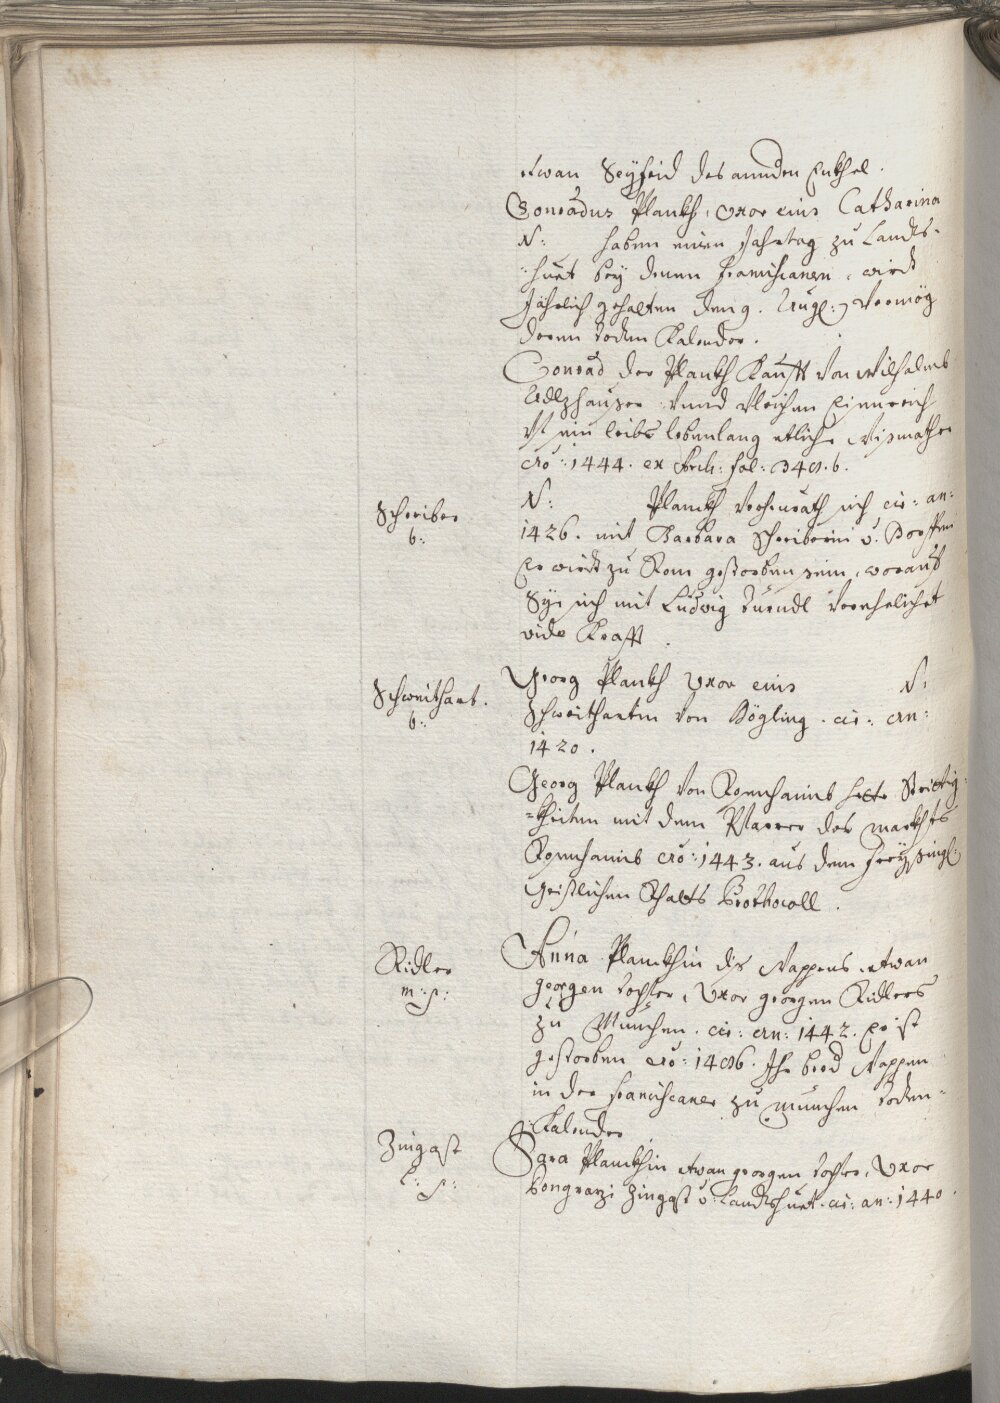 etwan Seyfrid des anndern Enkhel.
Conradus Plankh, Uxor eius Catharina
N: haben einen Jahrtag zu Landts-
huet bey denen Franciscanern, wirdt
Jährlich gehalten den 9. Aug: Vermög
deren Todten Kalender.
Conrad der Plankh Kaufft Von Wilhalmb
Adlzhauser Vnnd
ein leibs lebenlang etliche Wismather
a͠o: 1444. ex Arch: fol:
Schreiber
b:
N: Planckh Verheurath sich cir: an:
1426. mit Barbara Schreiberin v: Dorffen
Er wirdt zu Rom gestorben sein, worauf
Sye sich mit Ludwig Turndl Verehelichet
vide Krafft
Schweithart.
b:
Georg Plankh Uxor eius N:
Schweithartin Von Högling. cir: an:
1420.
Georg Plankh Von Rosenhaimb hette Strittig-
-kheiten mit dem Pfarrer des markhts
Rosenhaimb a͠o: 1443. aus dem Freysingl:
Geistlichen Rhatts Prothocoll.
Ridler
m: p:
Anna Planckhin dis Wappens, etwan
georgen tochter, Uxor georgen Ridlers
zu München. cir: an: 1442. Er ist
gestorben a͠o: Ihr beed Wappen
in der Franciscaner zu München todten-
Kalender
Zingast
l: p:
Sara Planckhin etwan georgen tochter, Uxor
Pongrazi Zingast v: Landtshuet. cir: an: 1440.